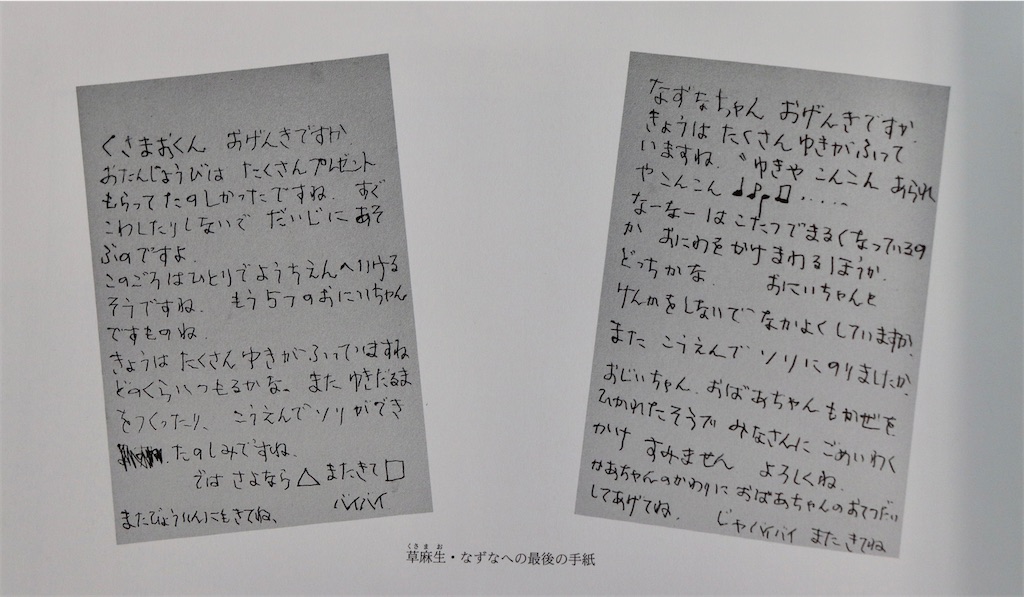 くさまおくん おげんきですか
おたんじょうびは たくさんプレゼント
もらってたのしかったですね. すぐ
こわしたりしないで だいじに あそ
ぶのですよ.
このごろはひとりでようちえんへいける
そうですね. もう5つのおにいちゃん
ですものね.
きょうは たくさん ゆきが ふっていますね
どのくらいつもるかな。また ゆきだるま
をつくったり、こうえんで ソリができ
たのしみですね.
では さよなら△ またきて□
バイバイ
またびょういんにもきてね、
なずなちゃん おげんきですか.
きょうは たくさん ゆきがふって
いますね. 〝ゆきや こんこん あられ
や こんこん ♩♪ □ .....
なーなー はこたつでまるくなっているの
か おにわをかけまわるほうか.
どっちかな. おにいちゃんと
けんかをしないで なかよくしていますか.
また こうえんで ソリにのりましたか.
おじいちゃん. おばあちゃんもかぜを
ひかれたそうで みなさんに ごめいわく
かけ すみません よろしくね.
かあちゃんのかわりに おばあちゃんのおてつだい
してあげてね. じゃバイバイ またきてね
くさまお
草麻生・なずなへの最後の手紙